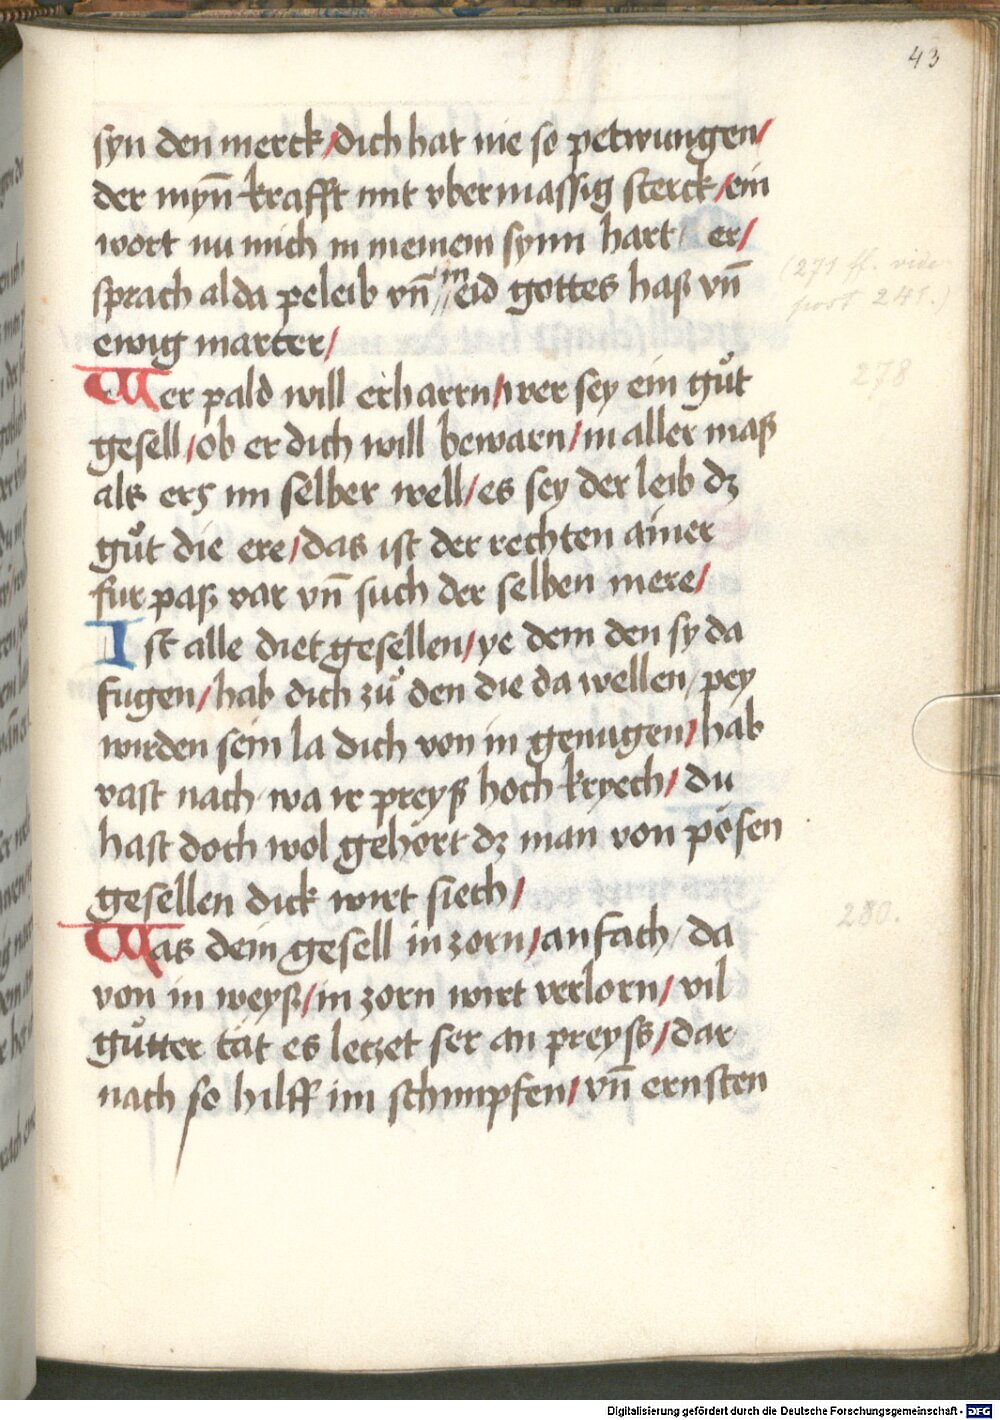 43
syn den merck / dich hat nie so petwungen /
der myn̄ krafft mit vbermassig sterck / ein
wort nu mich in meinem synn hart / er /
sprach alda peleib vn̄ in eid gottes haß vn̄
(271 ff. vide
post 241.)
ewig marter /
Wer pald will erharrn / wer sey ein gůt
278
gesell / ob er dich will bewarn / in aller maß
als erʒ im selber well / es sey der leib dʒ
gůt die ere / das ist der rechten ainer
fur paß var vn̄ such der selben mere /
Ist alle diet gesellen / ye dem den sy da
fugen / hab dich zů den die da wellen / pey
wirden sein la dich von in genugen / hab
vast nach wa ir preyß hoch kryech / du
hast doch wol gehort dʒ man von pösen
gesellen dick wirt siech /
280.
Was dein gesell in zorn / anfach / da
von in weyß / in zorn wirt verlorn / vil
gůtter tat es letzet ser an preyß / dar
nach so hilff im schimpfen / vn̄ ernsten
Digitalisierung gefördert durch die Deutsche Forschungsgemeinschaft - DFG